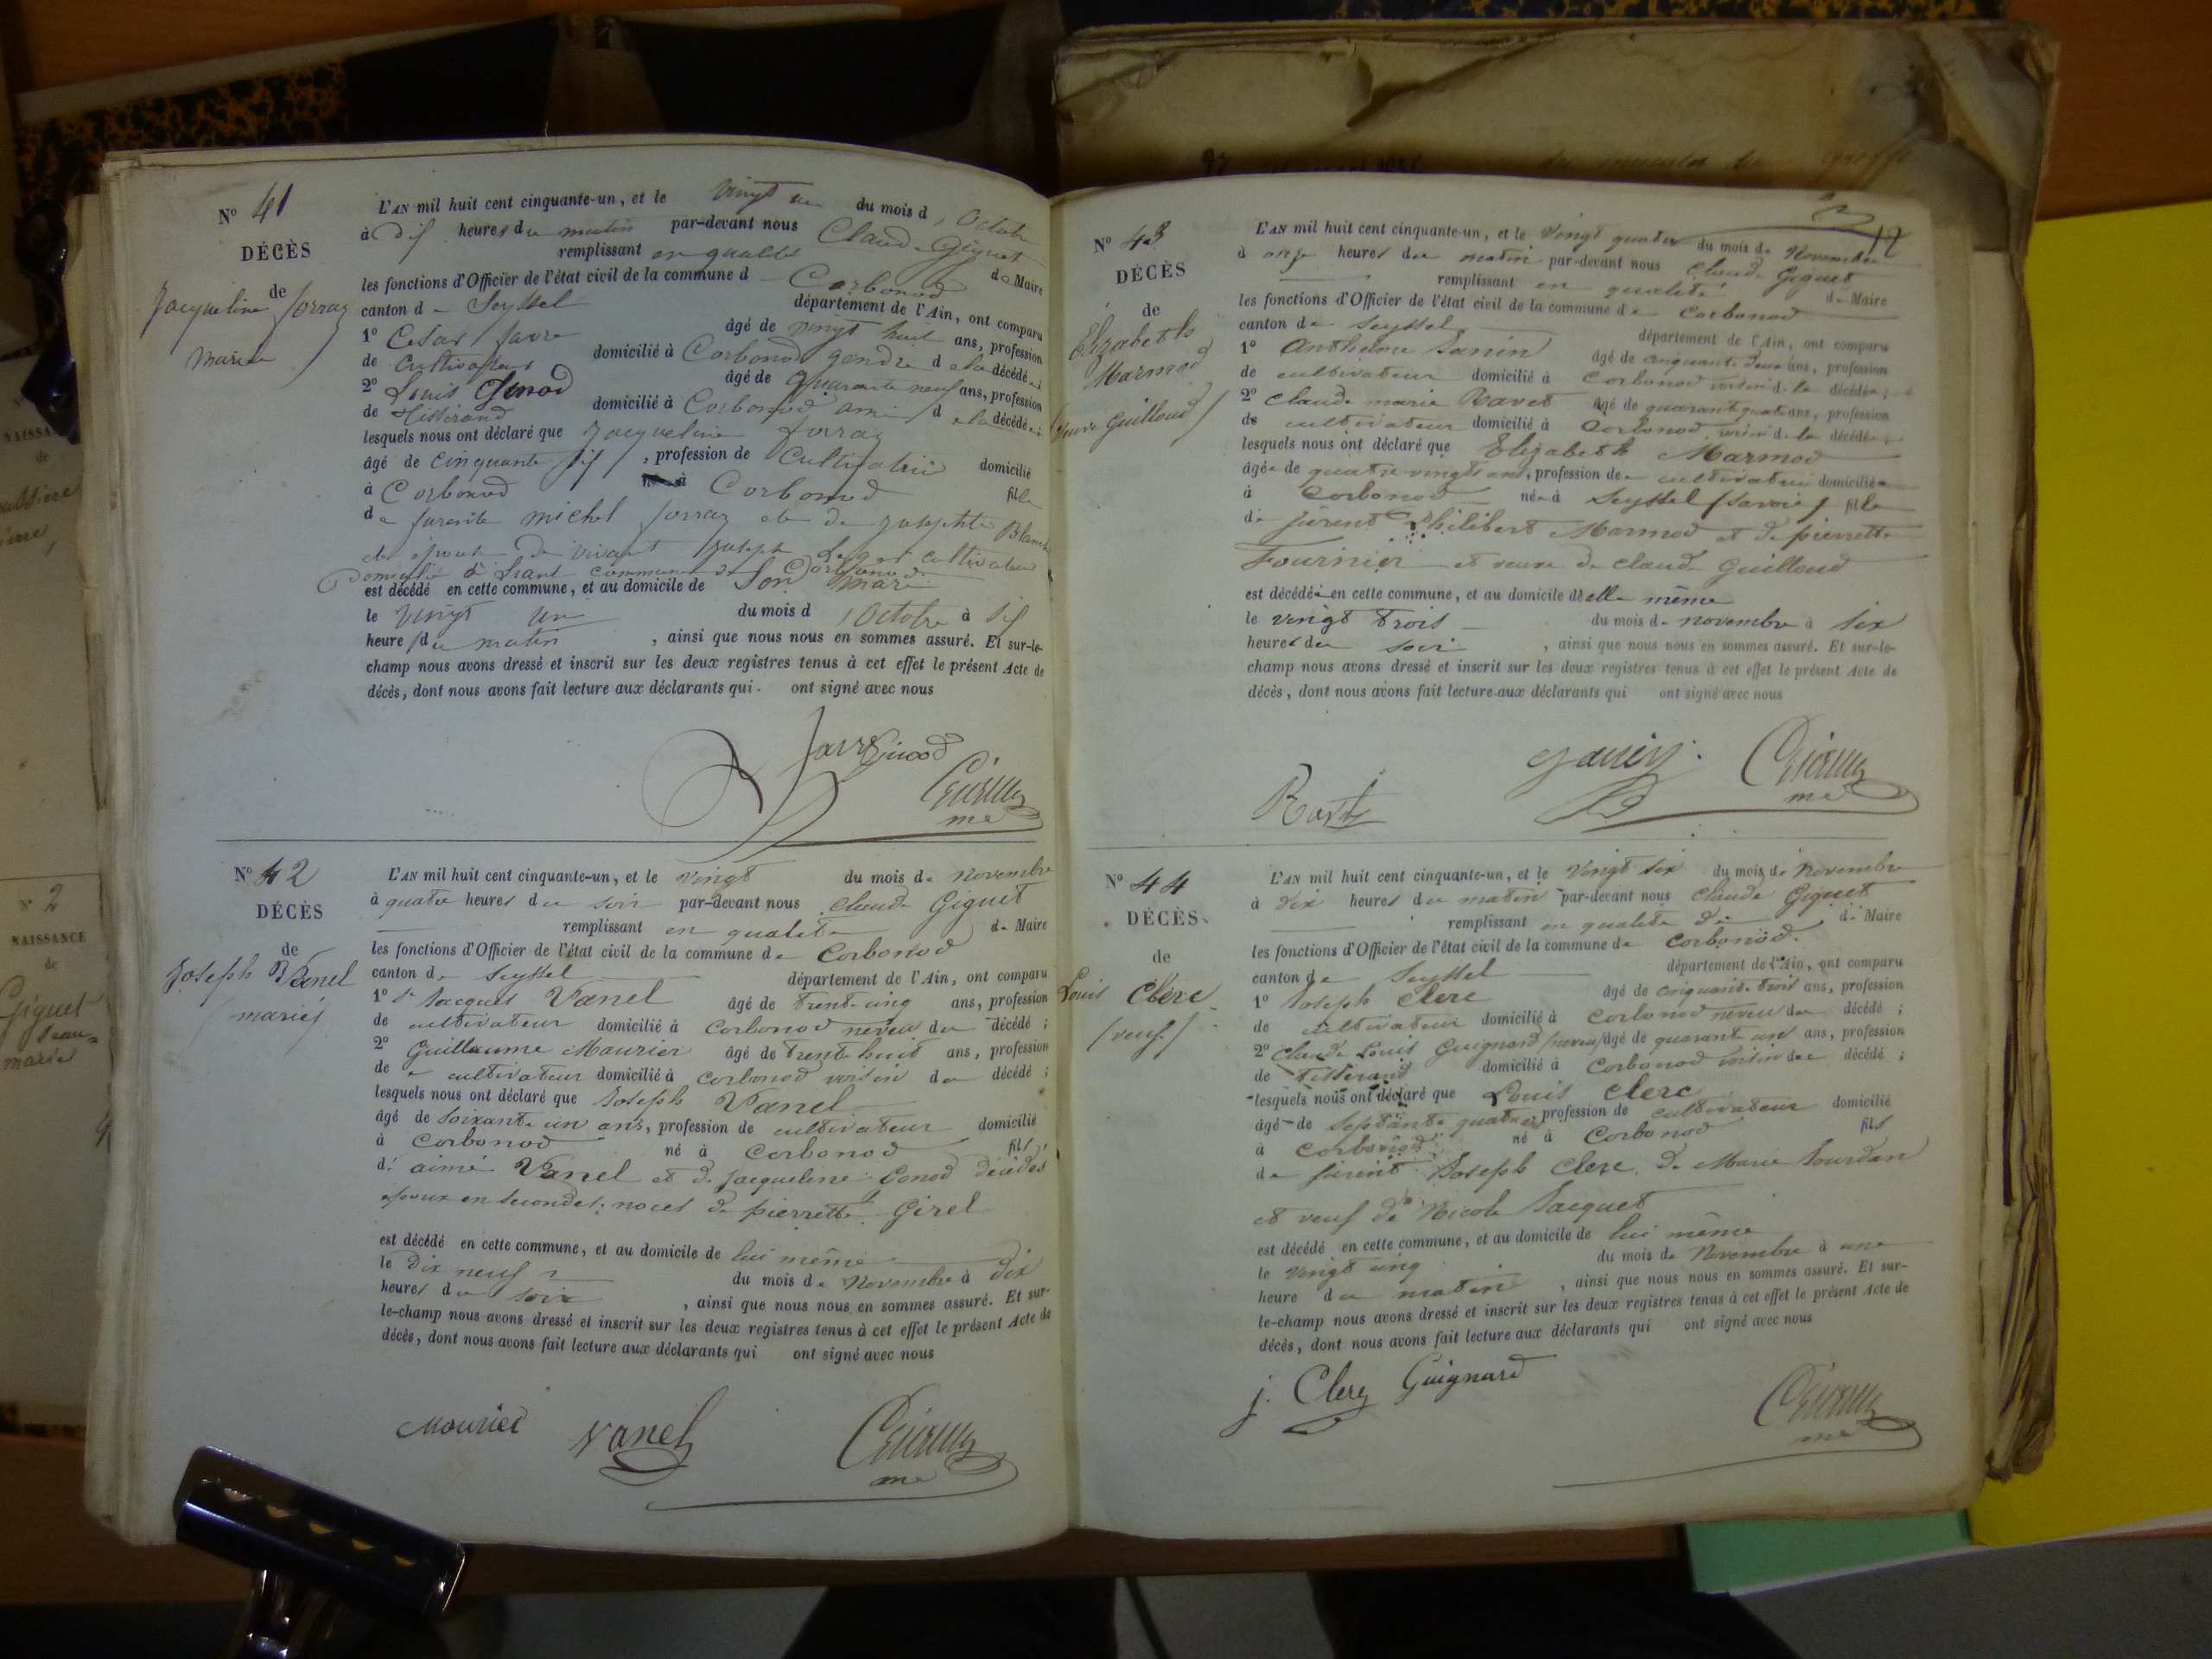 N° 41
DÉCÈS
de
Jacqueline Forraz
mariée
L'AN mil huit cent cinquante-un, et le vingt un du mois d'Octobre
à dix heures du matin par-devant nous Claude Giguet
remplissant en qualité de Maire
les fonctions d'Officier de l'état civil de la commune d Corbonod
canton de Seyssel département de l'Ain, ont comparu
1° Cesar favre âgé de vingt huit ans, profession
de cultivateur domicilié à Corbonod gendre de la décédée;
2° Louis Genod âgé de quarante neuf ans, profession
de tisserand domicilié à Corbonod ami de la décédée;
lesquels nous ont déclaré que Jacqueline forraz
âgé de cinquante six, profession de cultivatrice domicilié
à Corbonod à Corbonod fille
de furent michel forraz et de Josephte Blanc
et épouse de vivant Joseph cultivateur
domicilié à commune de Corbonod
est décédé en cette commune, et au domicile de son mari
le vingt un du mois d'Octobre à six
heures du matin, ainsi que nous nous en sommes assuré. Et sur-le-
champ nous avons dressé et inscrit sur les deux registres tenus à cet effet le présent Acte de
décès, dont nous avons fait lecture aux déclarants qui ont signé avec nous
favre Genod
N° 42
DÉCÈS
de
Joseph Vanel
(marié)
L'AN mil huit cent cinquante-un, et le vingt du mois de novembre
à quatre heures du soir par-devant nous Claude Giguet
remplissant en qualité de Maire
les fonctions d'Officier de l'état civil de la commune de Corbonod
canton de Seyssel département de l'Ain, ont comparu
1° Jacques Vanel âgé de trente cinq ans, profession
de cultivateur domicilié à Corbonod neveu du décédé;
2° Guillaume Mourier âgé de trente huit ans, profession
de cultivateur domicilié à Corbonod voisin du décédé;
lesquels nous ont déclaré que Joseph Vanel
âgé de soixante un ans, profession de cultivateur domicilié
à Corbonod né à Corbonod fils
de aimé Vanel et de Jacqueline Genod décédés
époux en secondes noces de pierrette Girel
est décédé en cette commune, et au domicile de lui même
le dix neuf du mois de Novembre à dix
heures du soir, ainsi que nous nous en sommes assuré. Et sur-
le-champ nous avons dressé et inscrit sur les deux registres tenus à cet effet le présent Acte de
décès, dont nous avons fait lecture aux déclarants qui ont signé avec nous
Mourier Vanel
12
N° 43
DÉCÈS
de
Elizabeth
Marmod
(veuve Guilloud)
L'AN mil huit cent cinquante-un, et le vingt quatre du mois de Novembre
à onze heures du matin par-devant nous Claude Giguet
remplissant en qualité de Maire
les fonctions d'Officier de l'état civil de la commune de Corbonod
canton de Seyssel département de l'Ain, ont comparu
1° Anthelme Janin âgé de cinquante deux ans, profession
de cultivateur domicilié à Corbonod voisin de la décédée;
2° Claude marie Ravet âgé de quarante quatre ans, profession
de cultivateur domicilié à Corbonod voisin de la décédée;
lesquels nous ont déclaré que Elizabeth Marmod
âgée de quatre vingts ans, profession de cultivatrice domiciliée
à Corbonod née à Seyssel (Savoie) fille
de furent Philibert Marmod et de pierrette
Fournier et veuve de Claude Guilloud
est décédée en cette commune, et au domicile de elle même
le vingt trois du mois de novembre à six
heures du soir, ainsi que nous nous en sommes assuré. Et sur-le-
champ nous avons dressé et inscrit sur les deux registres tenus à cet effet le présent Acte de
décès, dont nous avons fait lecture aux déclarants qui ont signé avec nous
N° 44
DÉCÈS
de
Louis Clerc
(veuf)
L'AN mil huit cent cinquante-un, et le vingt six du mois de Novembre
à dix heures du matin par-devant nous Claude Giguet
remplissant en qualité de de Maire
les fonctions d'Officier de l'état civil de la commune de Corbonod.
canton de Seyssel département de l'Ain, ont comparu
1° Joseph Clerc âgé de cinquante trois ans, profession
de cultivateur domicilié à Corbonod neveu du décédé;
2° Claude Louis Guignard (neveu) âgé de quarante un ans, profession
de tisserand domicilié à Corbonod voisin du décédé;
lesquels nous ont déclaré que Louis Clerc
âgé de septante quatre, profession de cultivateur domicilié
à Corbonod né à Corbonod fils
de furent Joseph Clerc de Marie Jourdan
et veuf de Nicole Jacquet
est décédé en cette commune, et au domicile de lui même
le vingt cinq du mois de Novembre à une
heure du matin, ainsi que nous nous en sommes assuré. Et sur-
le-champ nous avons dressé et inscrit sur les deux registres tenus à cet effet le présent Acte de
décès, dont nous avons fait lecture aux déclarants qui ont signé avec nous
j. Clerc Guignard
N° 2
NAISSANCE
de
Giguet
Jean-
marie